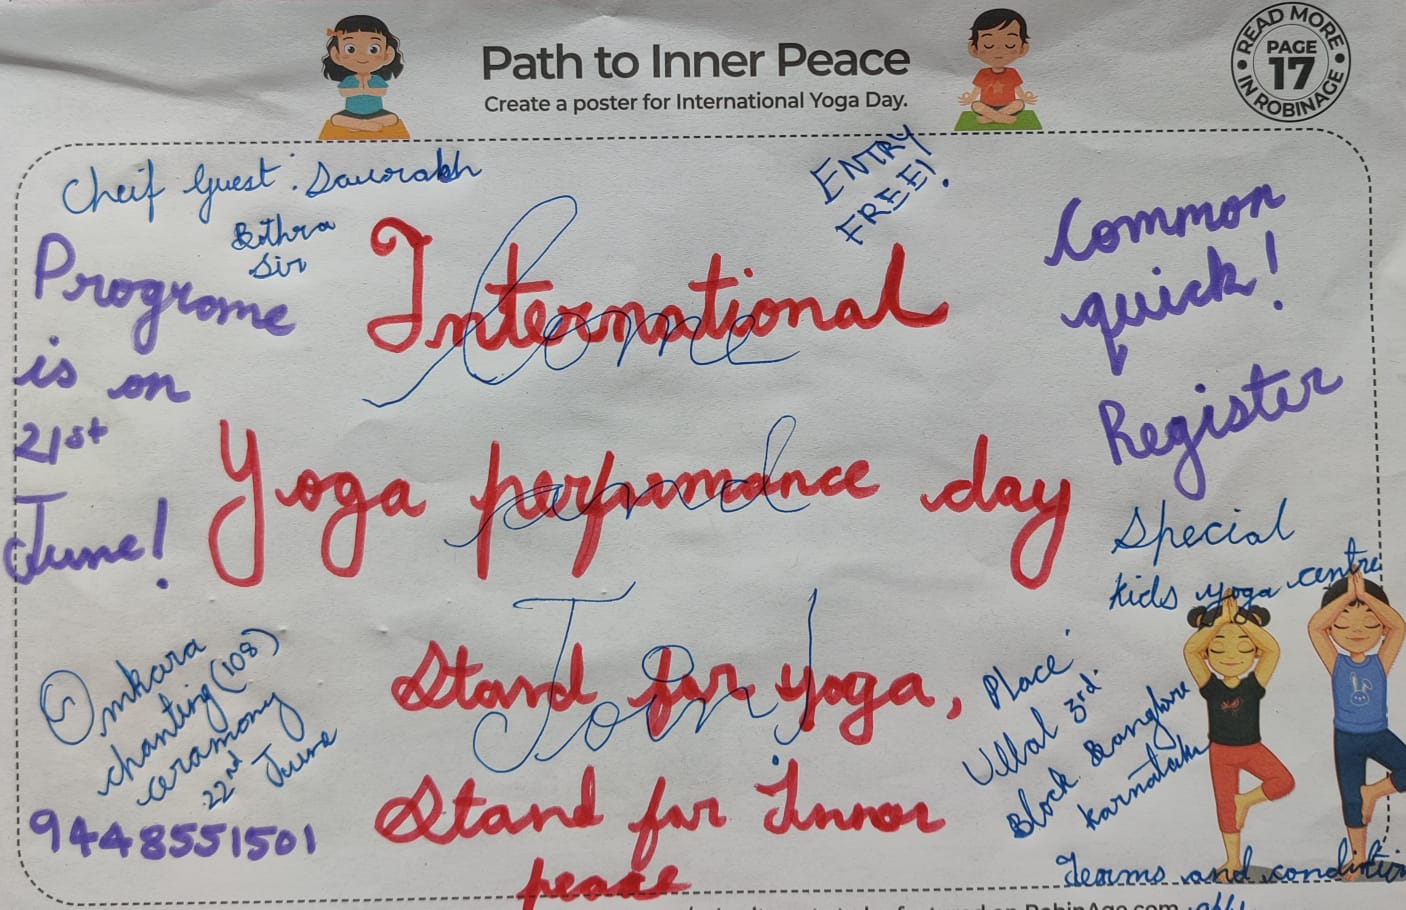 Path to Inner Peace
Create a poster for International Yoga Day.
READ MORE
PAGE
17
IN ROBINAGE
Cheif Guest: Saurabh
Bothra
Sir
ENTRY
FREE!
Programe
is on
21st
June!
International
Come
Yoga perfurmance day
and
Stand for yoga,
Join!
Stand for Inner
peace
Common
quick!
Register
Special
kids yoga centre
Omkara
chanting (108)
ceramony
22nd June
9448551501
Place:
Ullal 3rd
Block Banglore
Karnataka
Terms and condition
RobinAge.com